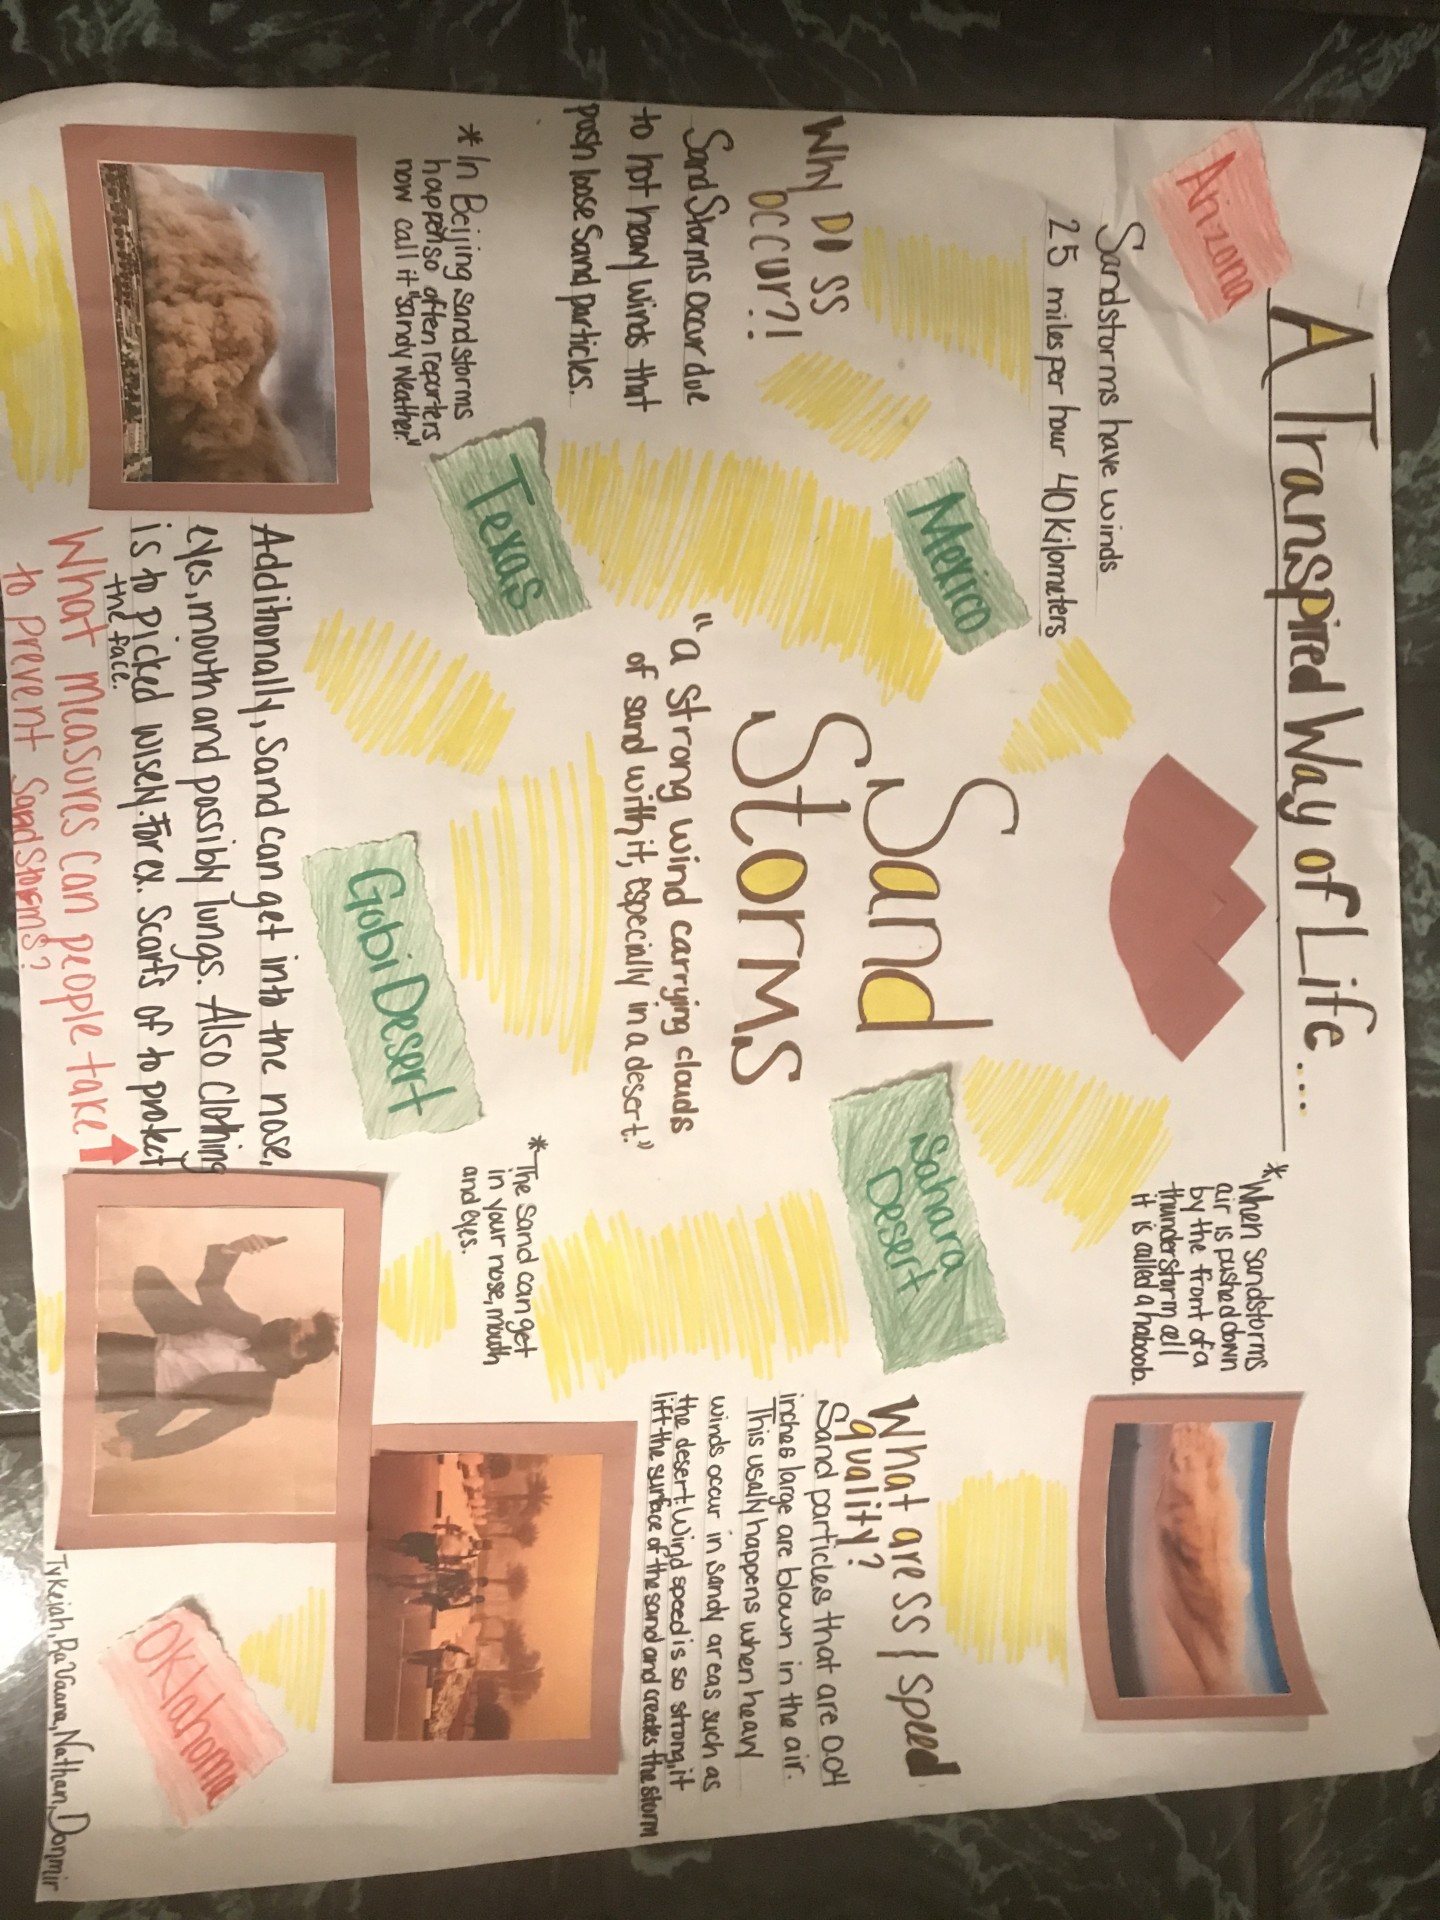 A Transpired Way of Life...
Arizona
Sandstorms have winds
25 miles per hour 40 kilometers
* When Sandstorms
air is pushed down
by the front of a
thunderstorm cell
it is called a haboob.
Mexico
Sand
Storms
"a strong wind carrying clouds
of sand with it, especially in a desert."
Sahara
Desert
Why Do SS
occur?!
Sand Storms occur due
to hot heavy winds that
push loose Sand particles.
What are SS | Speed
quality?
Sand particles that are 0.04
inches large are blown in the air.
This usally happens when heavy
winds occur in Sandy areas such as
the desert. Wind speed is so strong, it
lift the surface of the sand and creates the storm
* In Beijing sandstorms
happen so often reporters
now call it "sandy weather."
Texas
Gobi Desert
* The Sand can get
in your nose, mouth
and eyes.
Additionally, Sand can get into the nose,
eyes, mouth and possibly lungs. Also clothing
is to picked wisely. For ex. Scarfs of to protect
the face.
What measures can people take
to prevent Sand Storms?
Oklahoma
Tykejah, RaVaana, Nathan, Donmir